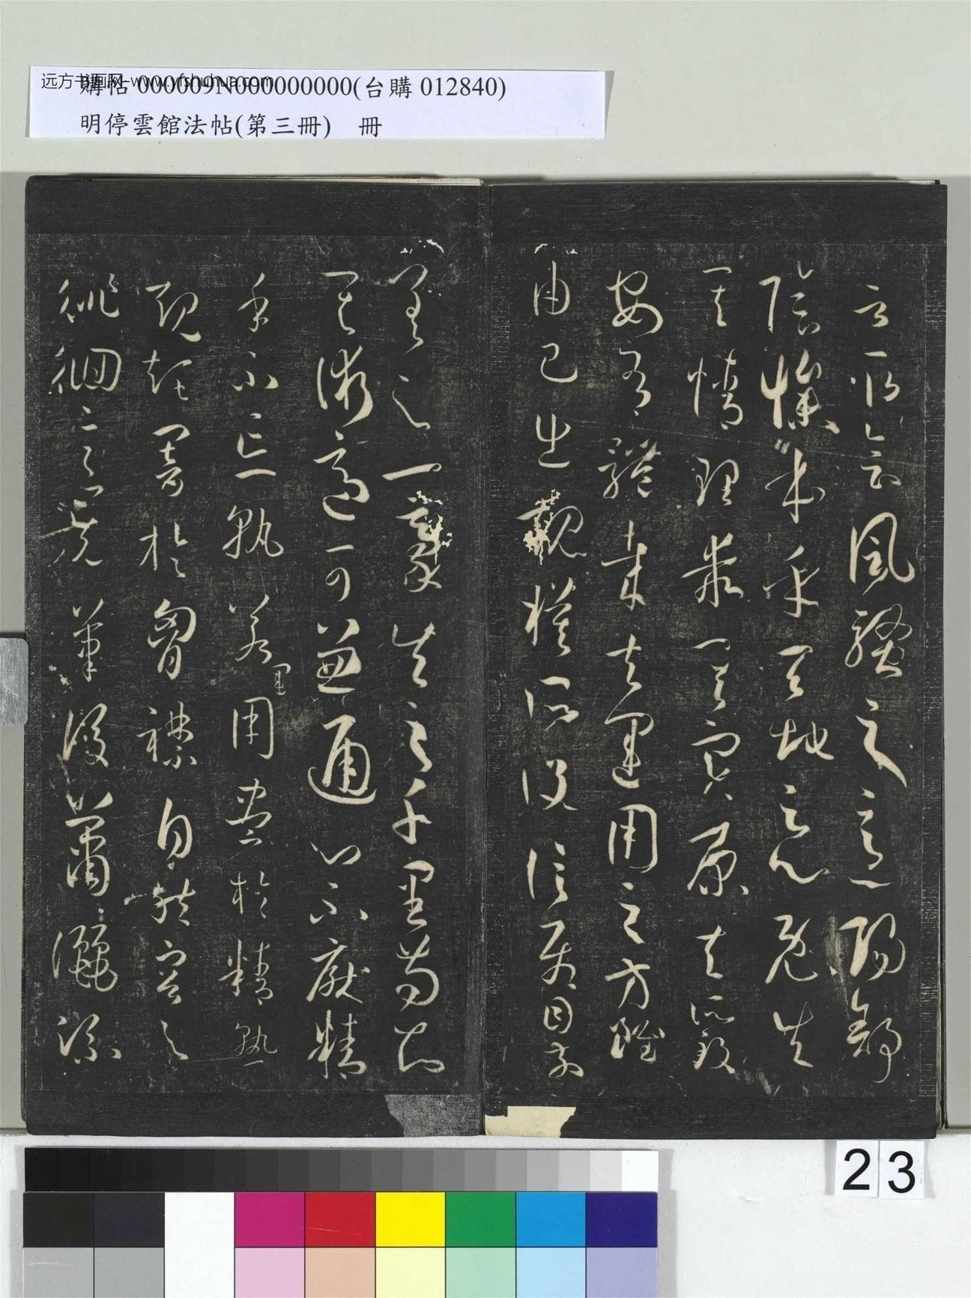 远方书画网-www.yfshuhua.com
購帖 000009N000000000(台購 012840)
明停雲館法帖(第三冊) 冊
言取會風騷之意陽舒
陰慘本乎天地之心既失
其情理乖其實原夫所致
安有體哉夫運用之方雖
由己出規模所設信屬目前
差之一豪失之千里苟知
其術適可兼通心不厭精
手不忘熟若運用盡於精熟
規矩闇於胷襟自然容与
徘徊意先筆後瀟灑流
23